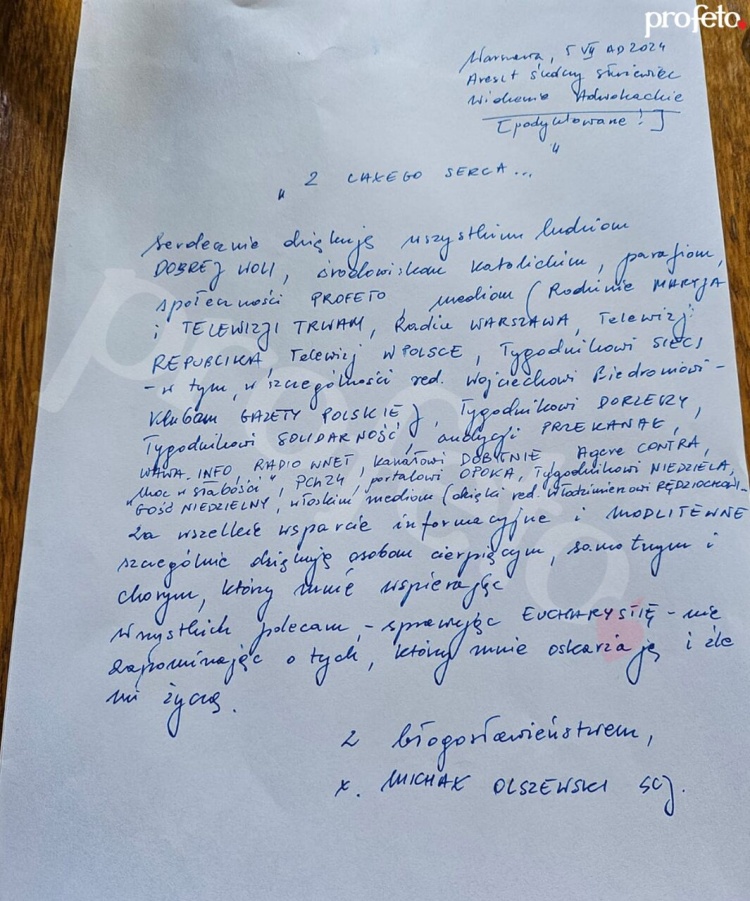 profeto
Warszawa, 5 VII AD 2024
Areszt śledczy służewiec
Widzenie Adwokackie
[podyktowane!]
"Z CAŁEGO SERCA..."
Serdecznie dziękuję wszystkim ludziom
DOBREJ WOLI, środowiskom katolickim, parafiom,
społeczności PROFETO, mediom (Rodzinie MARYJA
i TELEWIZJI TRWAM, Radiu WARSZAWA, Telewizji
REPUBLIKA, Telewizj WPOLSCE, Tygodnikowi SIECI
- w tym, w szczególności red. Wojciechowi Biedroniowi -
Klubom GAZETY POLSKIEJ, Tygodnikowi DORZECZY,
Tygodnikowi SOLIDARNOŚĆ, audycji PRZEKANAŁ,
WAWA.INFO, RADIO WNET, kanałowi DOBITNIE, Agere CONTRA,
"Moc w słabości", PCh24, portalowi OPOKA, Tygodnikowi NIEDZIELA,
GOŚĆ NIEDZIELNY, włoskim mediom (dzięki red. Włodzimierzowi RĘDZIOCHOWI-
za wszelkie wsparcie informacyjne i MODLITEWNE
szczególnie dziękuję osobom cierpiącym, samotnym i
chorym, którzy mnie wspierając
Wszystkich polecam, - sprawując EUCHARYSTIĘ - nie
zapominając o tych, którzy mnie oskarżają i źle
mi życzą.
Z błogosławieństwem,
x. MICHAŁ OLSZEWSKI SCJ.
profeto